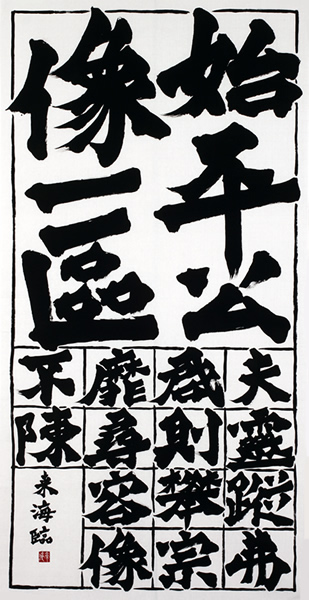 始平公
像一區
夫靈蹤弗
啓則攀宗
靡尋容像
不陳
来海臨